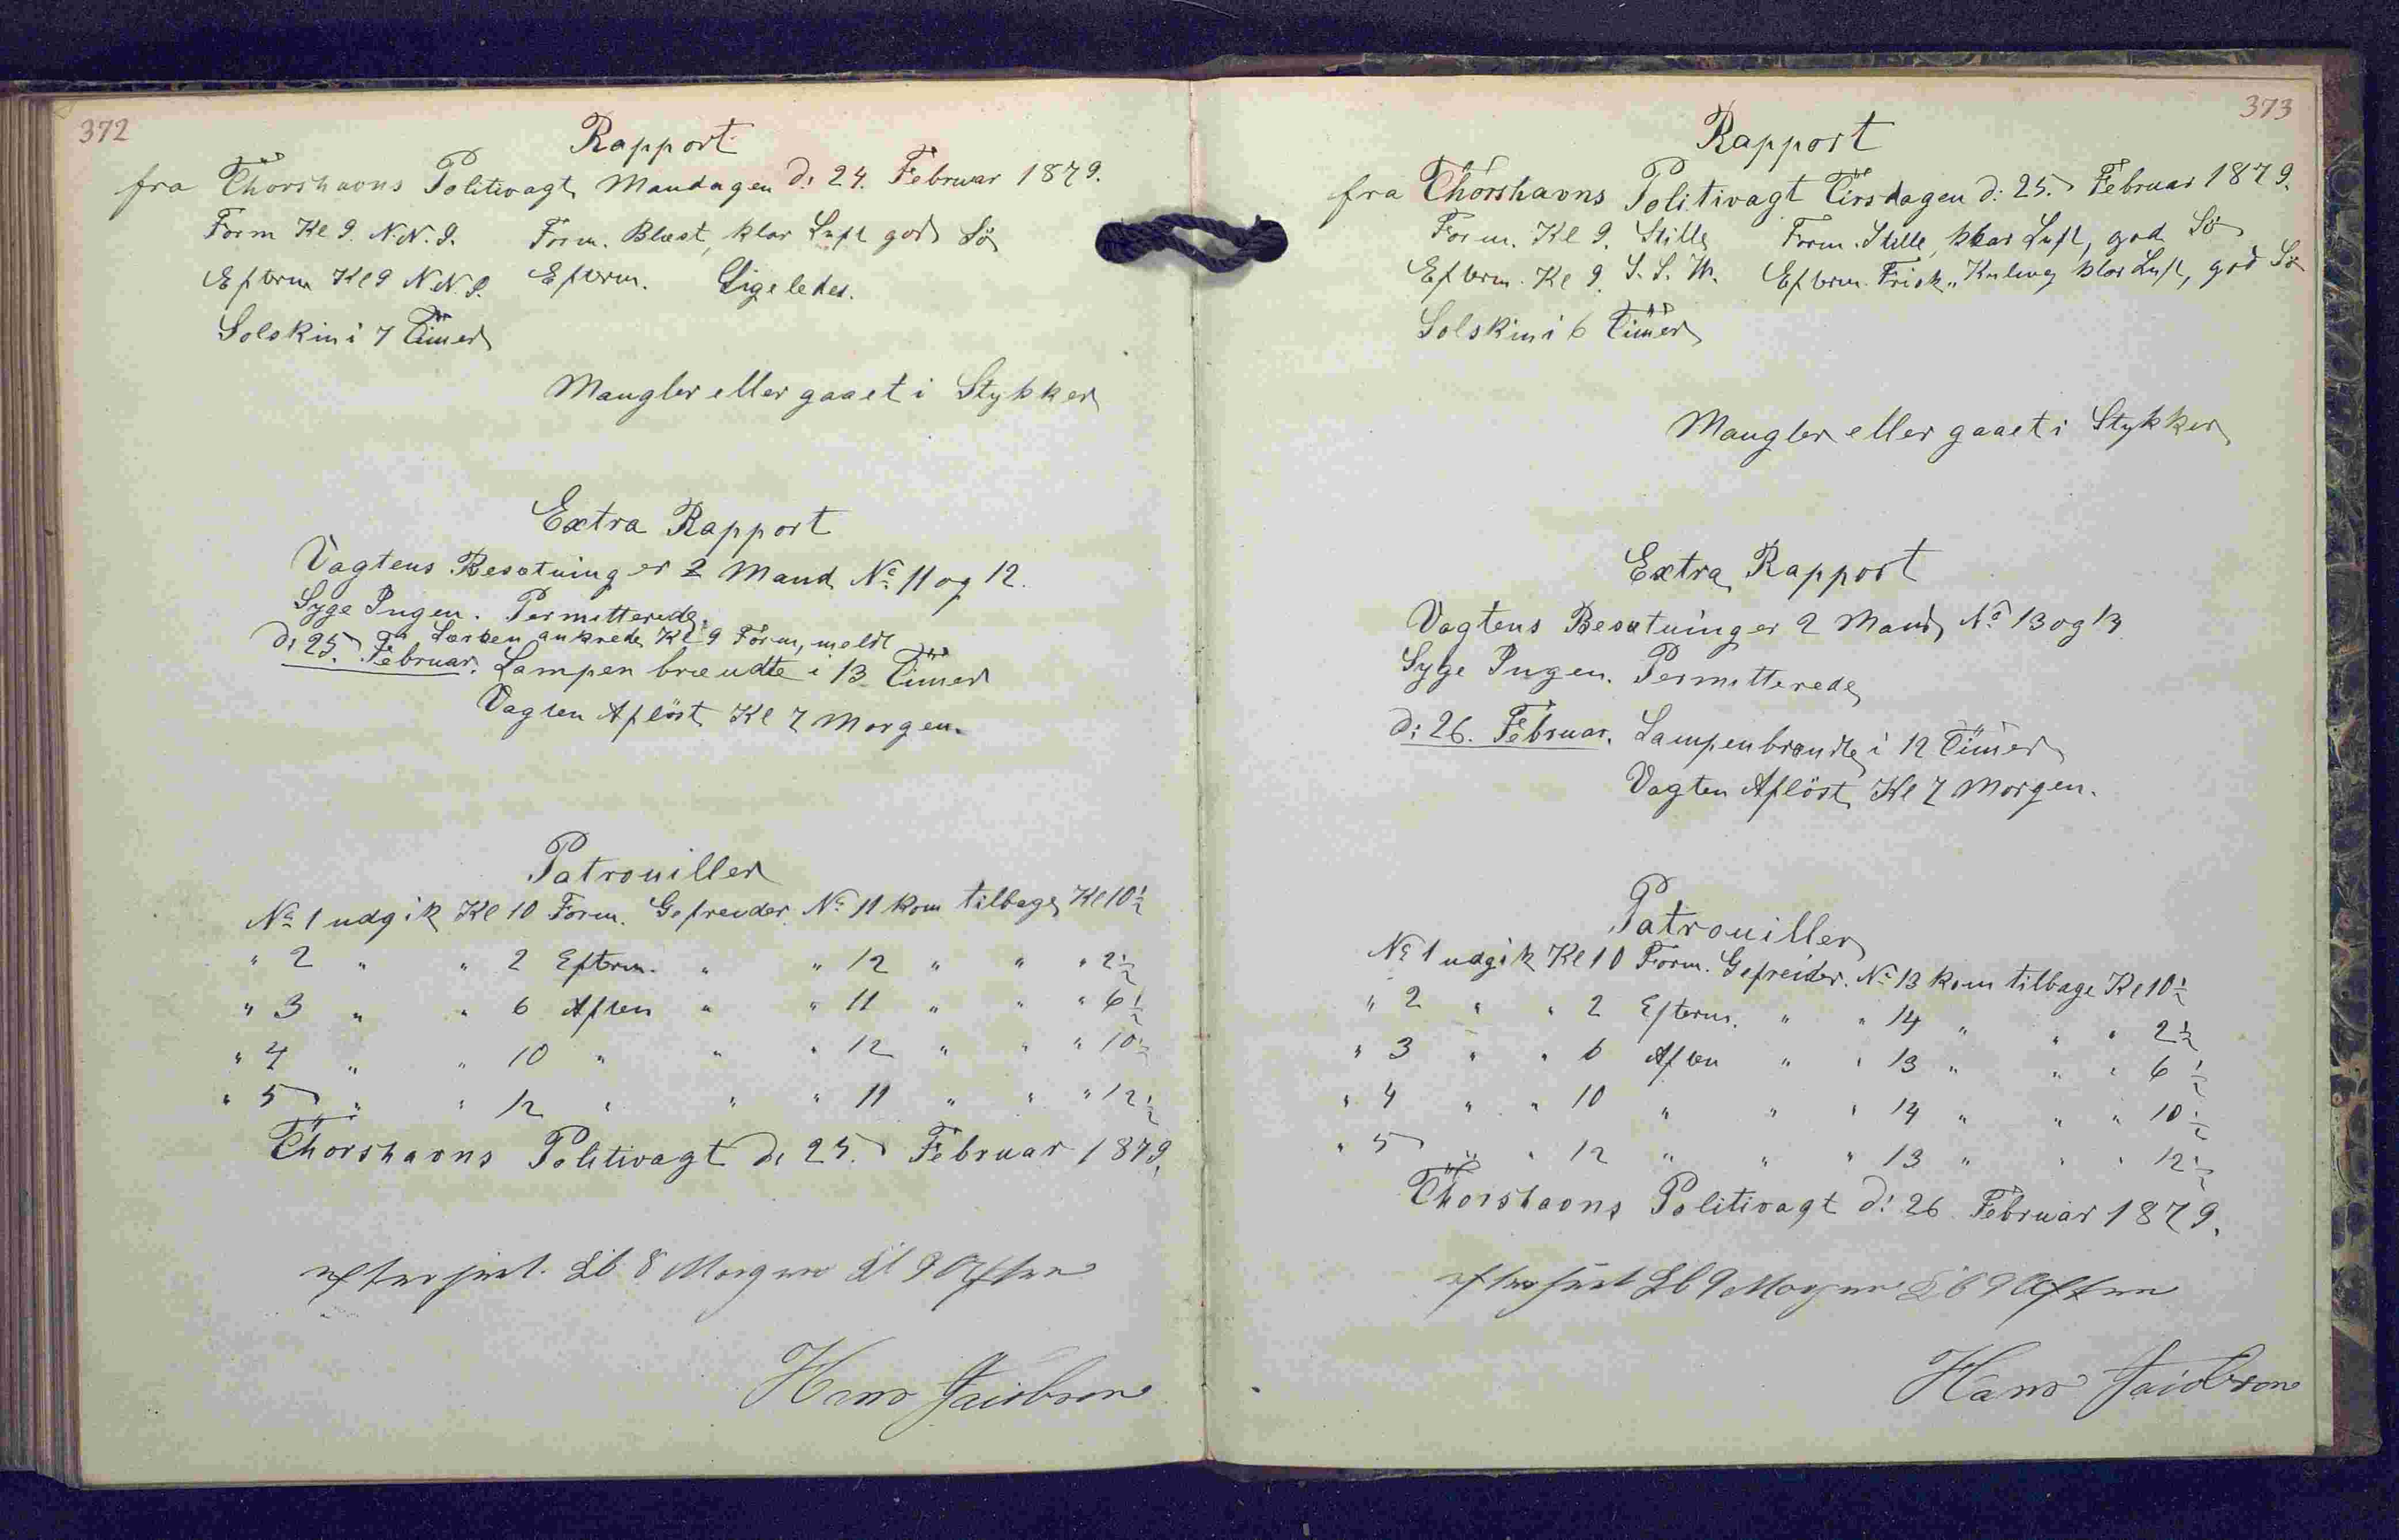 372
Rapport
fra Thorshavns Politivagt Mandagen d: 24. Februar 1879.
Form Kl 9. N.N.O. Form. Blæst, klar Luft god Sö
Efterm Kl 9 N.N.O. Efterm. Ligeledes.
Solskin i 7 Timer
Mangler eller gaaet i Stykker
Extra Rapport
Vagtens Besætning er 2 Mand No 11 og 12.
Syge Ingen. Permitterede.
Lærken ankrede Kl 9 Form, meldt
d: 25. Februar. Lampen brændte i 13 Timer
Vagten Aflöst Kl 7 Morgen.
Patrouiller
No 1 udgik Kl 10 Form. Gefreider No 11 kom tilbage Kl 10½
" 2 " " 2 Efterm. " " 12 " " " 2½
" 3 " " 6 Aften " " 11 " " " 6½
" 4 " " 10 " " " 12 " " " 10½
" 5 " " 12 " " " 11 " " " 12½
Thorshavns Politivagt d: 25. Februar 1879.
efterseet. Kl. 8 Morgen Kl 9 Aften
Hans Jacobsen
373
Rapport
fra Thorshavns Politivagt Tirsdagen d: 25. Februar 1879.
Form. Kl 9. Stille Form. Stille, klar Luft, god Sö
Efterm. Kl 9. S.S.W. Efterm. Frisk " Kuling klar Luft, god Sö
Solskin i 6 Timer
Mangler eller gaaet i Stykker
Extra Rapport
Vagtens Besætning er 2 Mand No 13 og 13
Syge Ingen. Permitterede
d: 26. Februar. Lampen brændte i 12 Timer
Vagten Aflöst Kl 7 Morgen.
Patrouiller
No 1 udgik Kl 10 Form. Gefreider. No 13 kom tilbage Kl 10½
" 2 " " 2 Efterm. " " 14 " " " 2½
" 3 " " 6 Aften " " 13 " " " 6½
" 4 " " 10 " " " 14 " " " 10½
" 5 " " 12 " " " 13 " " " 12½
Thorshavns Politivagt d: 26 Februar 1879.
efterseet Kl 9 Morgen Kl 9 Aften
Hans Jacobsen